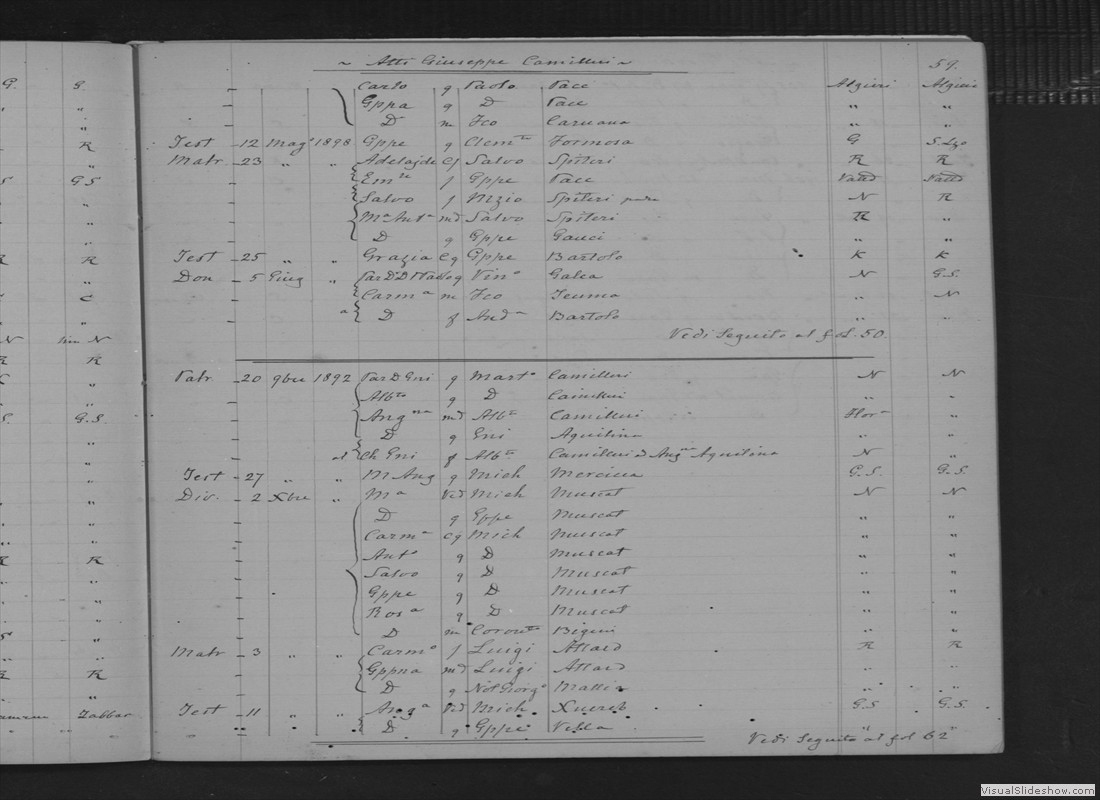 G. G.
R
S GS
R R
C
N N
R R
S. G.S.
R R
S
R R
Zabbar
~ Atti Giuseppe Camilleri ~ 59.
Carlo g Paolo Pace Algieri Algieri
Gppa g D Pace " "
D m Fco Caruana " "
Test - 12 Magº 1898 Gppe g Clemte Formosa G S. Lzo
Matr - 23 " " Adelaide Cg Salvo Spiteri R R
f Gppe Pace
Salvo f Nzio Spiteri N R
Mª Antª md Salvo Spiteri R "
D g Gppe Gauci " "
Test - 25 " " Grazia Cg Gppe Bartolo K K
Don - 5 Giug " g Vinº Galea N G.S.
Carmª m Fco Teuma " N
a D f Andª Bartolo " "
Vedi Seguito al fol. 50.
- 20 9bre 1892 Par D Gni g Martº Camilleri N N
Albto g D Camilleri " "
md Albº Camilleri Florª "
D g Gni Aquilina " "
ed Ch Gni f Albº Camilleri ed Angª Aquilina N "
Test - 27 " M Ang g Mich Mercieca G.S. G.S.
Div. - 2 Xbre " Mª Ved Mich Muscat N N
D g Gppe Muscat " "
Carmª Cg Mich Muscat " "
Antº g D Muscat " "
Salvo g D Muscat " "
Gppe g D Muscat " "
Rosª g D Muscat " "
D m " "
Matr - 3 " " Carmº f Luigi Attard R R
Gppna md Luigi Attard " "
D g Not Giorgº " "
Test - 11 " " Angª Ved Mich Xuereb G.S G.S.
D g Gppe Vella " "
Vedi Seguito al fol 62
VisualSlideshow.com